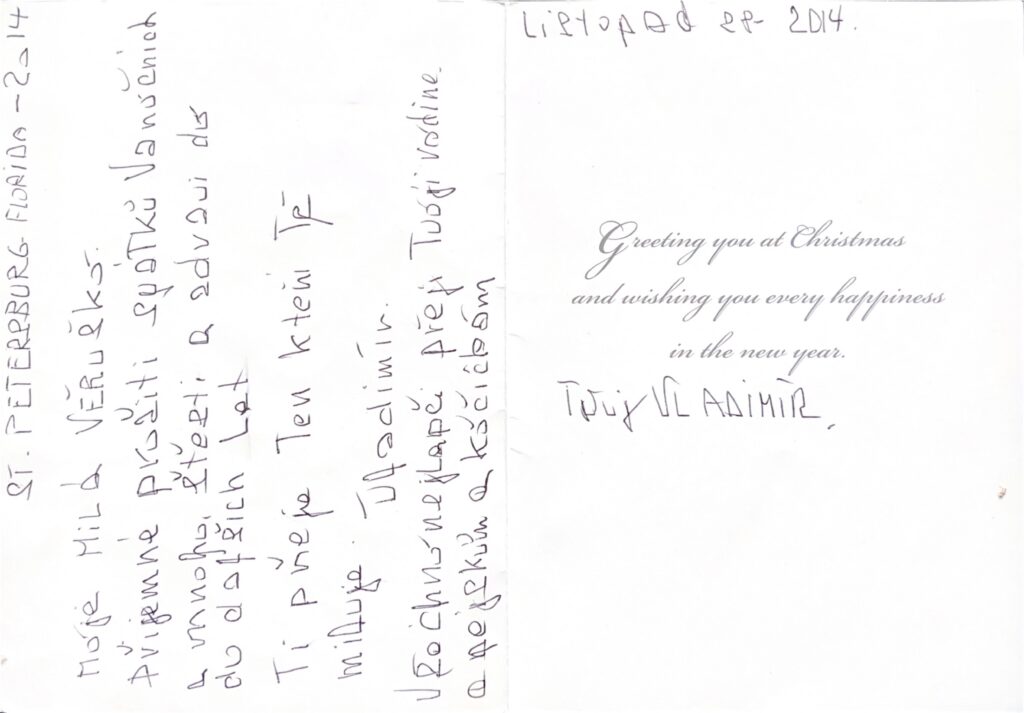 ST. PETERSBURG FLORIDA - 2014
Moje MILÁ VĚRUŠKO.
Příjemné prožití svátků Vánočních
a mnoho štěstí a zdraví do
do dalších Let
Ti přeje Ten který Tě
miluje. Vladimír.
Všechno nejlepší přeji Tvojí rodine.
a pejskům a kočičkám
Listopad 28- 2014.
Greeting you at Christmas
and wishing you every happiness
in the new year.
Tvůj VLADIMÍR.